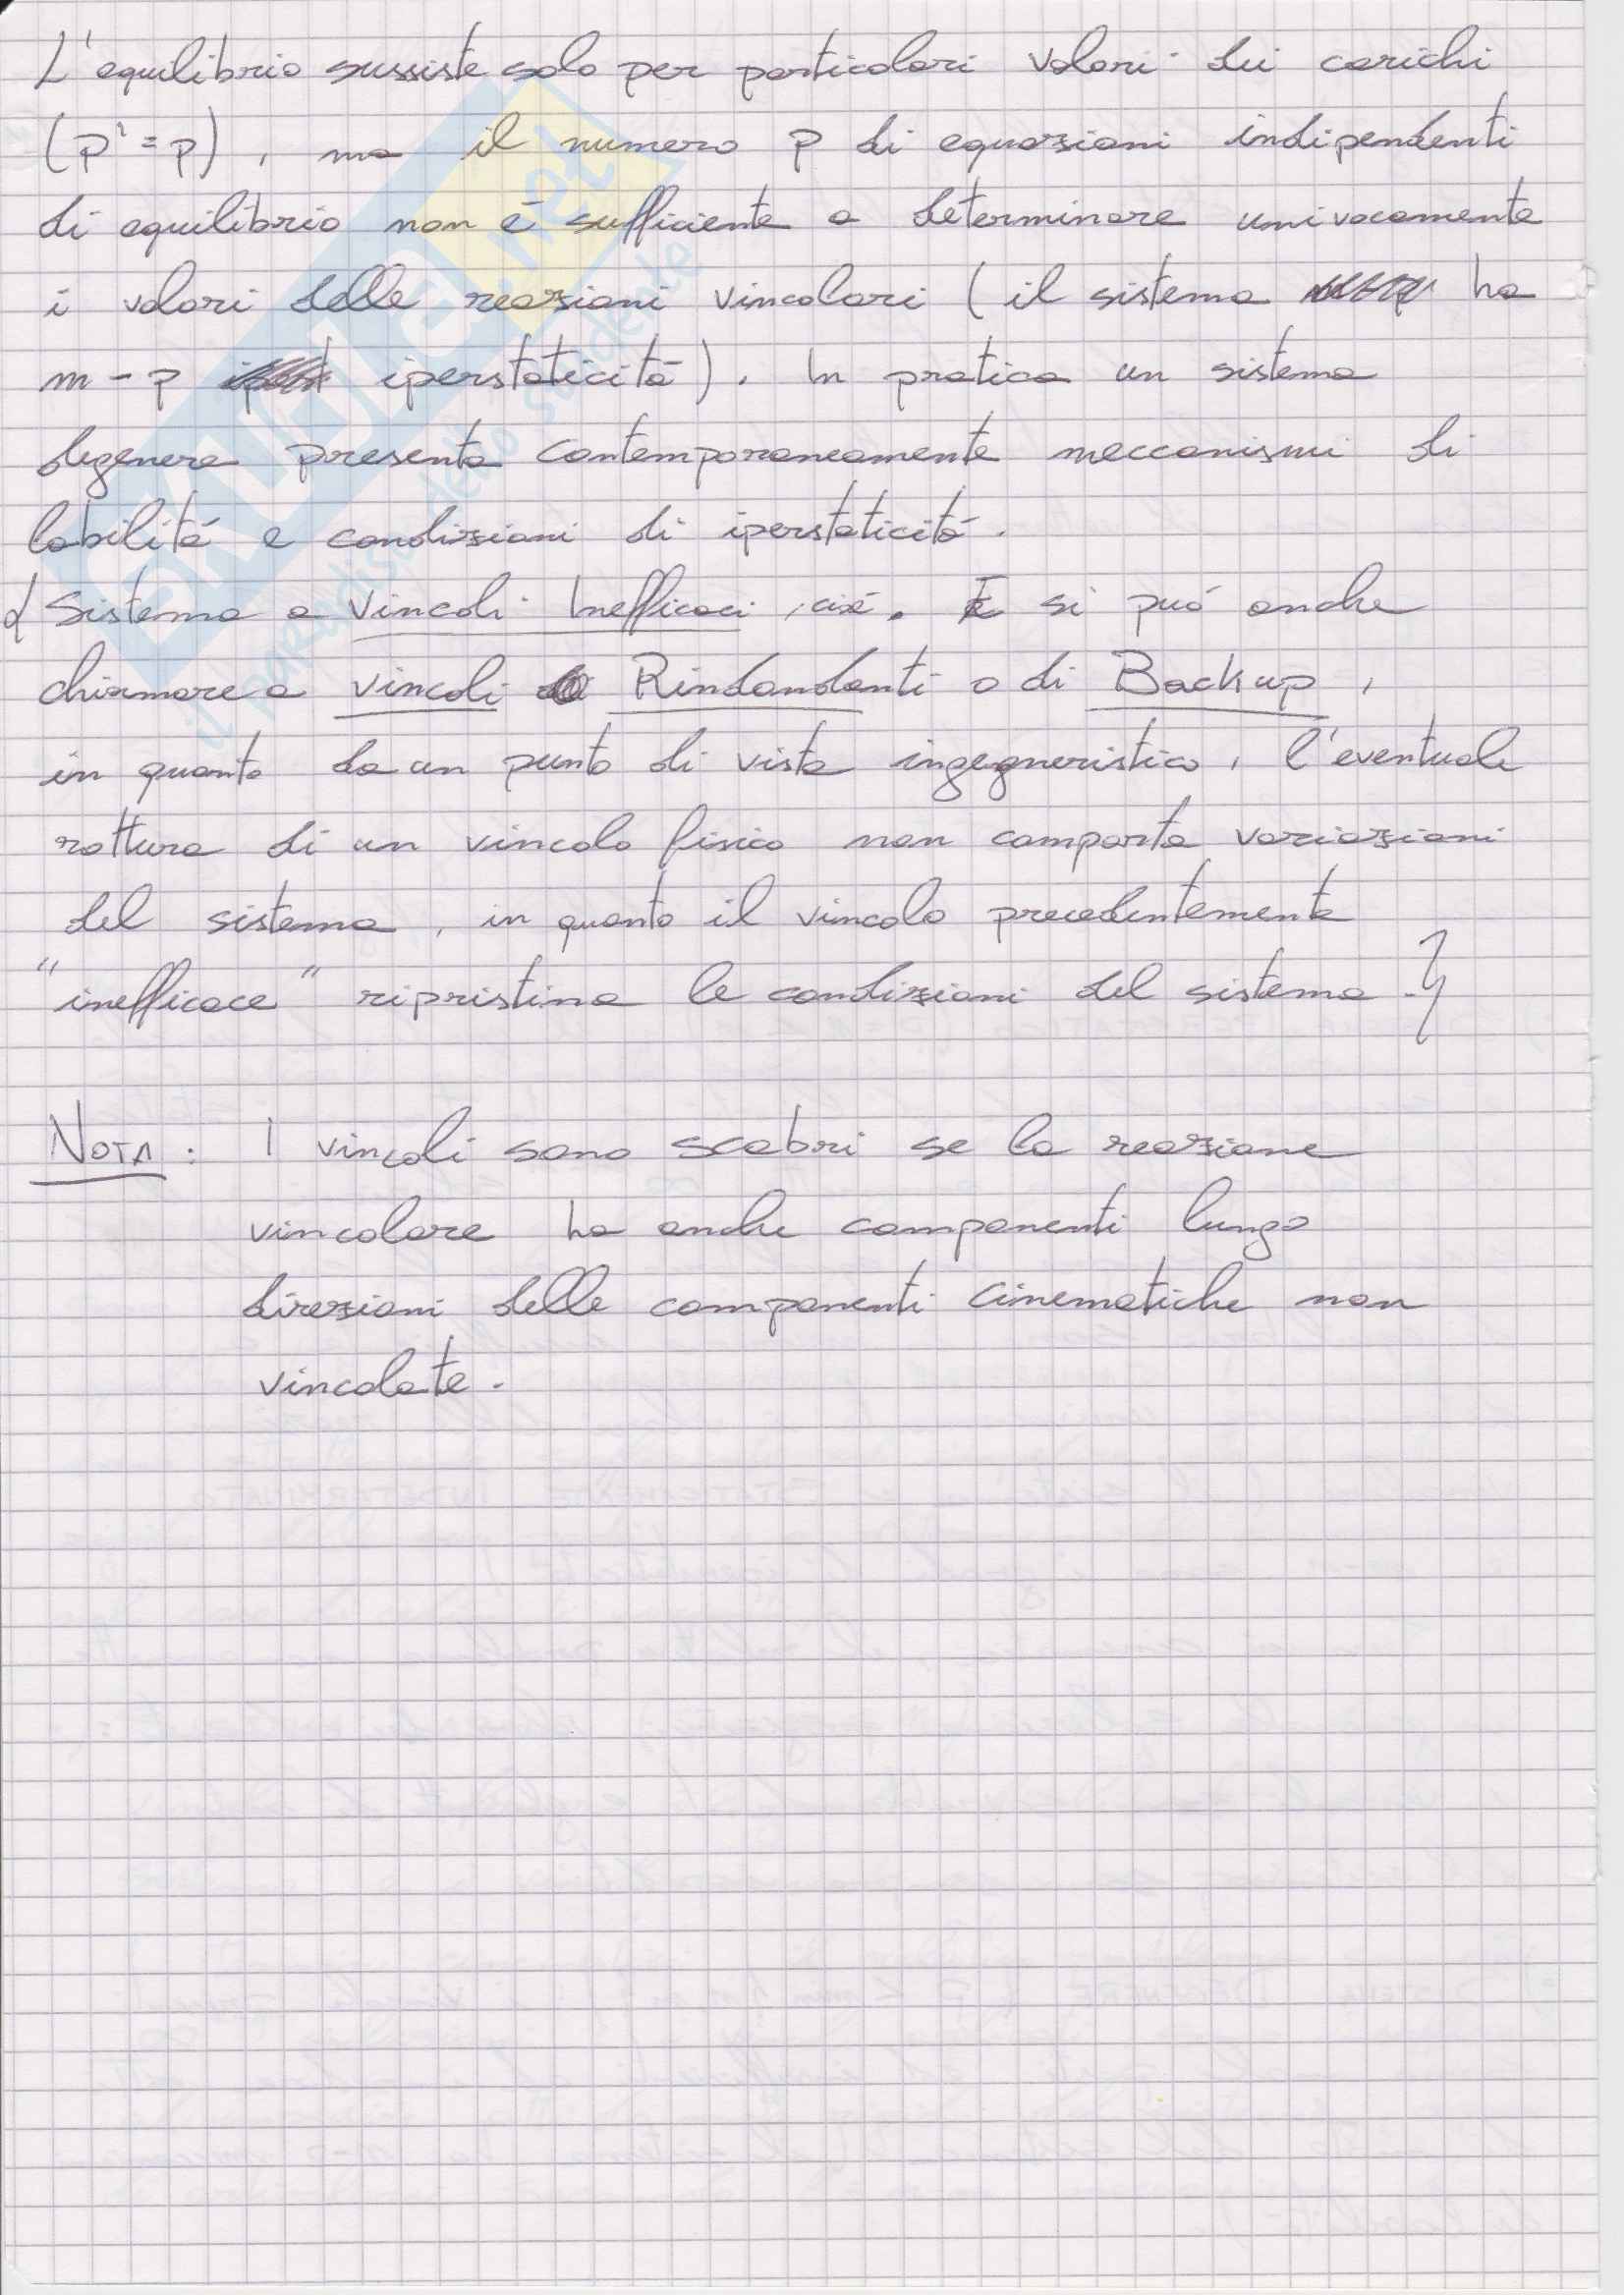 L'equilibrio sussiste solo per particolari valori dei carichi
(p'=p), ma il numero p di equazioni indipendenti
di equilibrio non é sufficiente a determinare univocamente
i valori delle reazioni vincolari (il sistema ha
m-p iperstaticitá). In pratica un sistema
degenere presenta contemporaneamente meccanismi di
labilitá e condizioni di iperstaticitá.
Sistema a Vincoli Inefficaci, cioé. E si puó anche
chiamare a vincoli Rindondanti o di Backup,
in quanto da un punto di vista ingegneristico, l'eventuale
rottura di un vincolo fisico non comporta variazioni
del sistema, in quanto il vincolo precedentemente
"inefficace" ripristina le condizioni del sistema.}
NOTA: I vincoli sono scabri se la reazione
vincolare ha anche componenti lungo
direzioni delle componenti cinematiche non
vincolate.